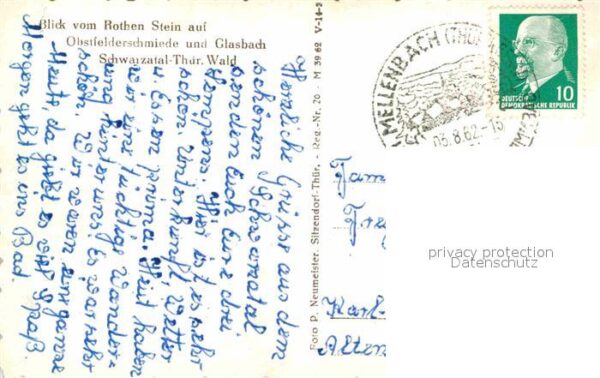 Blick vom Rothen Stein auf
Obstfelderschmiede und Glasbach
Schwarzatal-Thür. Wald
Herzliche Grüsse aus dem
schönen Schwarzatal
senden Euch Eure drei
Hier ist es sehr
schön Unterkunft, Wetter
u. Essen prima. Heut haben
wir eine tüchtige Wander-
ung hinter uns. Es war sehr
schön. Wir waren im ganze
Heute da gibt es viel Spaß.
Morgen geht es ins Bad.
Foto P. Neumeister, Sitzendorf-Thür. - Reg.-Nr. 20 - M 39 62 V-14-2
MELLENBACH (THÜR
05.8.62-15
DEUTSCHE
DEMOKRATISCHE REPUBLIK
10
Fam
Karl-
Alten
privacy protection
Datenschutz